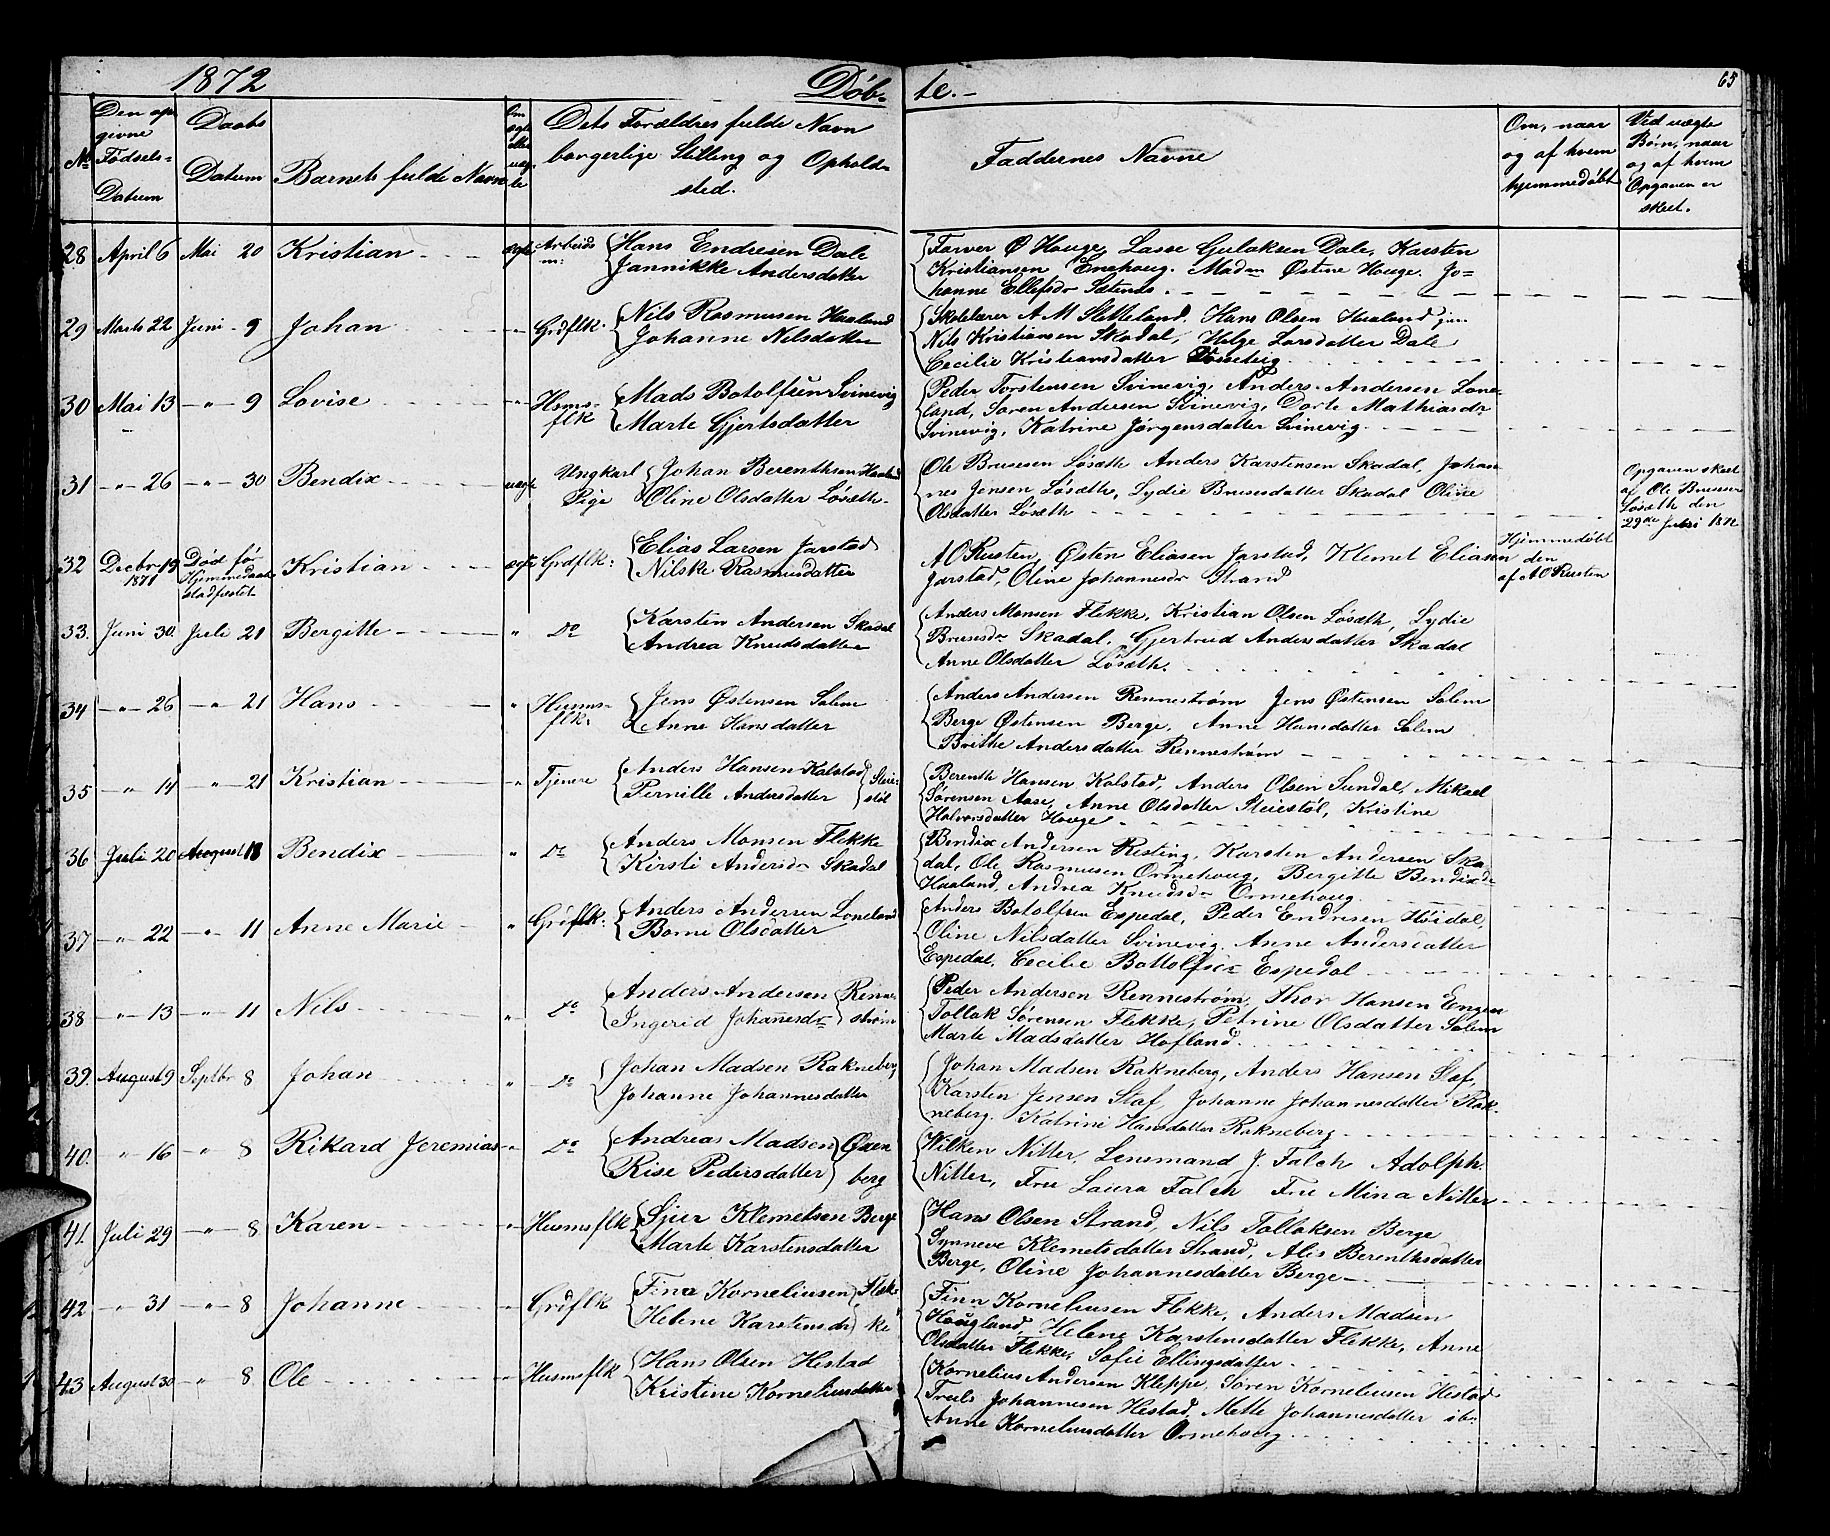 1872 Døb- te.- 65
No Den opgivne Fødsels-Datum Daabs Datum Barnets fulde Navn Om ægte eller uægte Dets Forældres fulde Navn borgerlige Stilling og Opholdssted. Faddernes Navne Om, naar og af hvem hjemmedøbt Ved uægte Børn, naar og af hvem Opgaven er skeet.
28 April 6 Mai 20 Kristian ægte Arbeids m: Hans Endresen Dale
Jannikke Andersdatter
Farver Ø Houge, Lasse Gulaksen Dale, Karsten
Kristiansen Enehoug. Madm Østine Houge. Jo=
hanne Ellefsdr Sætenes.
29 Marts 22 Juni 9 Johan " Grdflk. Nils Rasmusen Haaland
Johanne Nilsdatter
Skolelærer A M Sletteland, Hans Olsen Haaland jun.
Nils Kristiansen Skadal, Helge Larsdatter Dale
Cecilie Kristiansdatter
30 Mai 13 " 9 Lovise " Hsms-flk Mads Botolfsen Svinevig
Marte Gjertsdatter
Peder Torstensen Svinevig, Anders Andersen Lone-
land, Søren Andersen Svinevig, Dorte Mathiasdr
Svinevig, Katrine Jørgensdatter Svinevig.
31 " 26 " 30 Bendix uægte Ungkarl Johan Berenthsen Haaland
Pige Oline Olsdatter Løsæth
Ole Brusesen Løsæth Anders Karstensen Skadal, Johan
nes Jensen Løsæth, Lydie Brusesdatter Skadal Oline
Olsdatter Løsæth
Opgaven skeet
af Ole Brusesen
Løsæth den
29de Juni 1872
32 Decbr 19 1871 Død før Hjemmedaab stadfæstet Kristian ægte Grdflk: Elias Larsen Jarstad
Nilske Rasmusdatter
A O Rusten, Østen Eliasen Jarstad, Klemet Eliasen
Jarstad, Oline Johannesdr Strand
Hjemmedøbt
den
af A O Rusten
33. Juni 30. Juli 21 Bergitte " Do Karsten Andersen Skadal
Andrea Knudsdatter
Anders Monsen Flekke, Kristian Olsen Løsæth, Lydie
Brusesdr Skadal, Gjertrud Andersdatter Skadal
Anne Olsdatter Løsæth.
34 " 26 " 21 Hans " Husms-flk: Jens Østensen Solem
Anne Hansdatter
Anders Andersen Rennestrøm Jens Østensen Solem
Berge Østensen Berge, Anne Hansdatter Solem
Brithe Andersdatter Rennestrøm
35 " 14 " 21 Kristian " Tjenere Anders Hansen Kalstad
Pernille Andersdatter Steiestøl
Berenth Hansen Kolstad, Anders Olsen Sundal, Mikael
Sørensen Aase, Anne Olsdatter Steiestøl, Kristine
Halvorsdatter Houge
36 Juli 20 August 18 Bendix " Do Anders Monsen Flekke
Kirsti Andersdr Skadal
Bendix Andersen Risting, Karsten Andersen Ska-
dal, Ole Rasmusen Ormehoug, Bergitte Bendixdr
Haaland, Andrea Knudsdr Ormehoug.
37 " 22 " 11 Anne Marie " Grdflk: Anders Andersen Loneland
Borne Olsdatter
Anders Botolfsen Espedal, Peder Endresen Høidal,
Oline Nilsdatter Svinevig, Anne Andersdatter
Espedal, Cecilie Bottolfsdr Espedal
38 " 13 " 11 Nils " Do Anders Andersen Rennestrøm
Ingerid Johannesdr
Peder Andersen Rennestrøm, Thor Hansen Engen
Tollak Sørensen Flekke, Petrine Olsdatter Solem
Marte Madsdatter Hofland.
39. August 9 Septbr 8 Johan " Do Johan Madsen Rakneberg
Johanne Johannesdatter
Johan Madsen Rakneberg, Anders Hansen Staf,
Karsten Jensen Staf Johanne Johannesdatter Rak-
neberg. Katrine Hansdatter Rakneberg
40. " 16 " 8 Rikard Jeremias " Do Andreas Madsen Øxenberg
Rise Pedersdatter
Wilken Nitter, Lensmand J. Falch Adolph.
Nitter, Fru Laura Falch Fru Mina Nitter
41. Juli 29 " 8 Karen " Husmsflk Sjur Klemetsen Berge
Marte Karstensdatter
Hans Olsen Strand, Nils Tollaksen Berge
Synneve Klemetsdatter Strand, Alis Berenthsdatter
Berge, Oline Johannesdatter Berge
42 " 31 " 8 Johanne " Grdflk Finn Korneliusen Flekke
Helene Karstensdr
Finn Korneliusen Flekke, Anders Madsen
Hougland, Helene Karstensdatter Flekke, Anne
Olsdatter Flekke, Sofie Ellingsdatter
43 August 30 " 8. Ole " Husmsflk Hans Olsen Hestad
Kristine Korneliusdatter
Kornelius Andersen Kleppe, Søren Korneliusen Hestad
Truls Johannesen Hestad, Mette Johannesdatter ib.
Anne Korneliusdatter Ormehoug